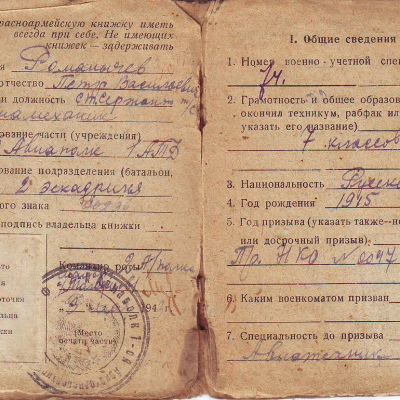 расноармейскую книжку иметь
всегда при себе. Не имеющих
книжек — задерживать
Романычев
Петр Васильевич
и должность сержант т/с
механик
ование части (учреждения)
Авиаполк 1 АТД
ование подразделения (батальон,
2 эскадрилья
ого знака
подпись владельца книжки
Командир роты
194
(Место
печати части)
I. Общие сведения
1. Номер военно-учетной спе
74.
2. Грамотность и общее образов
окончил техникум, рабфак ил
указать его название)
7 классов
3. Национальность Русск
4. Год рождения 1915
5. Год призыва (указать также
или досрочный призыв)
Пр. НКО № 0047
6. Каким военкоматом призван
7. Специальность до призыва
Авиатехник